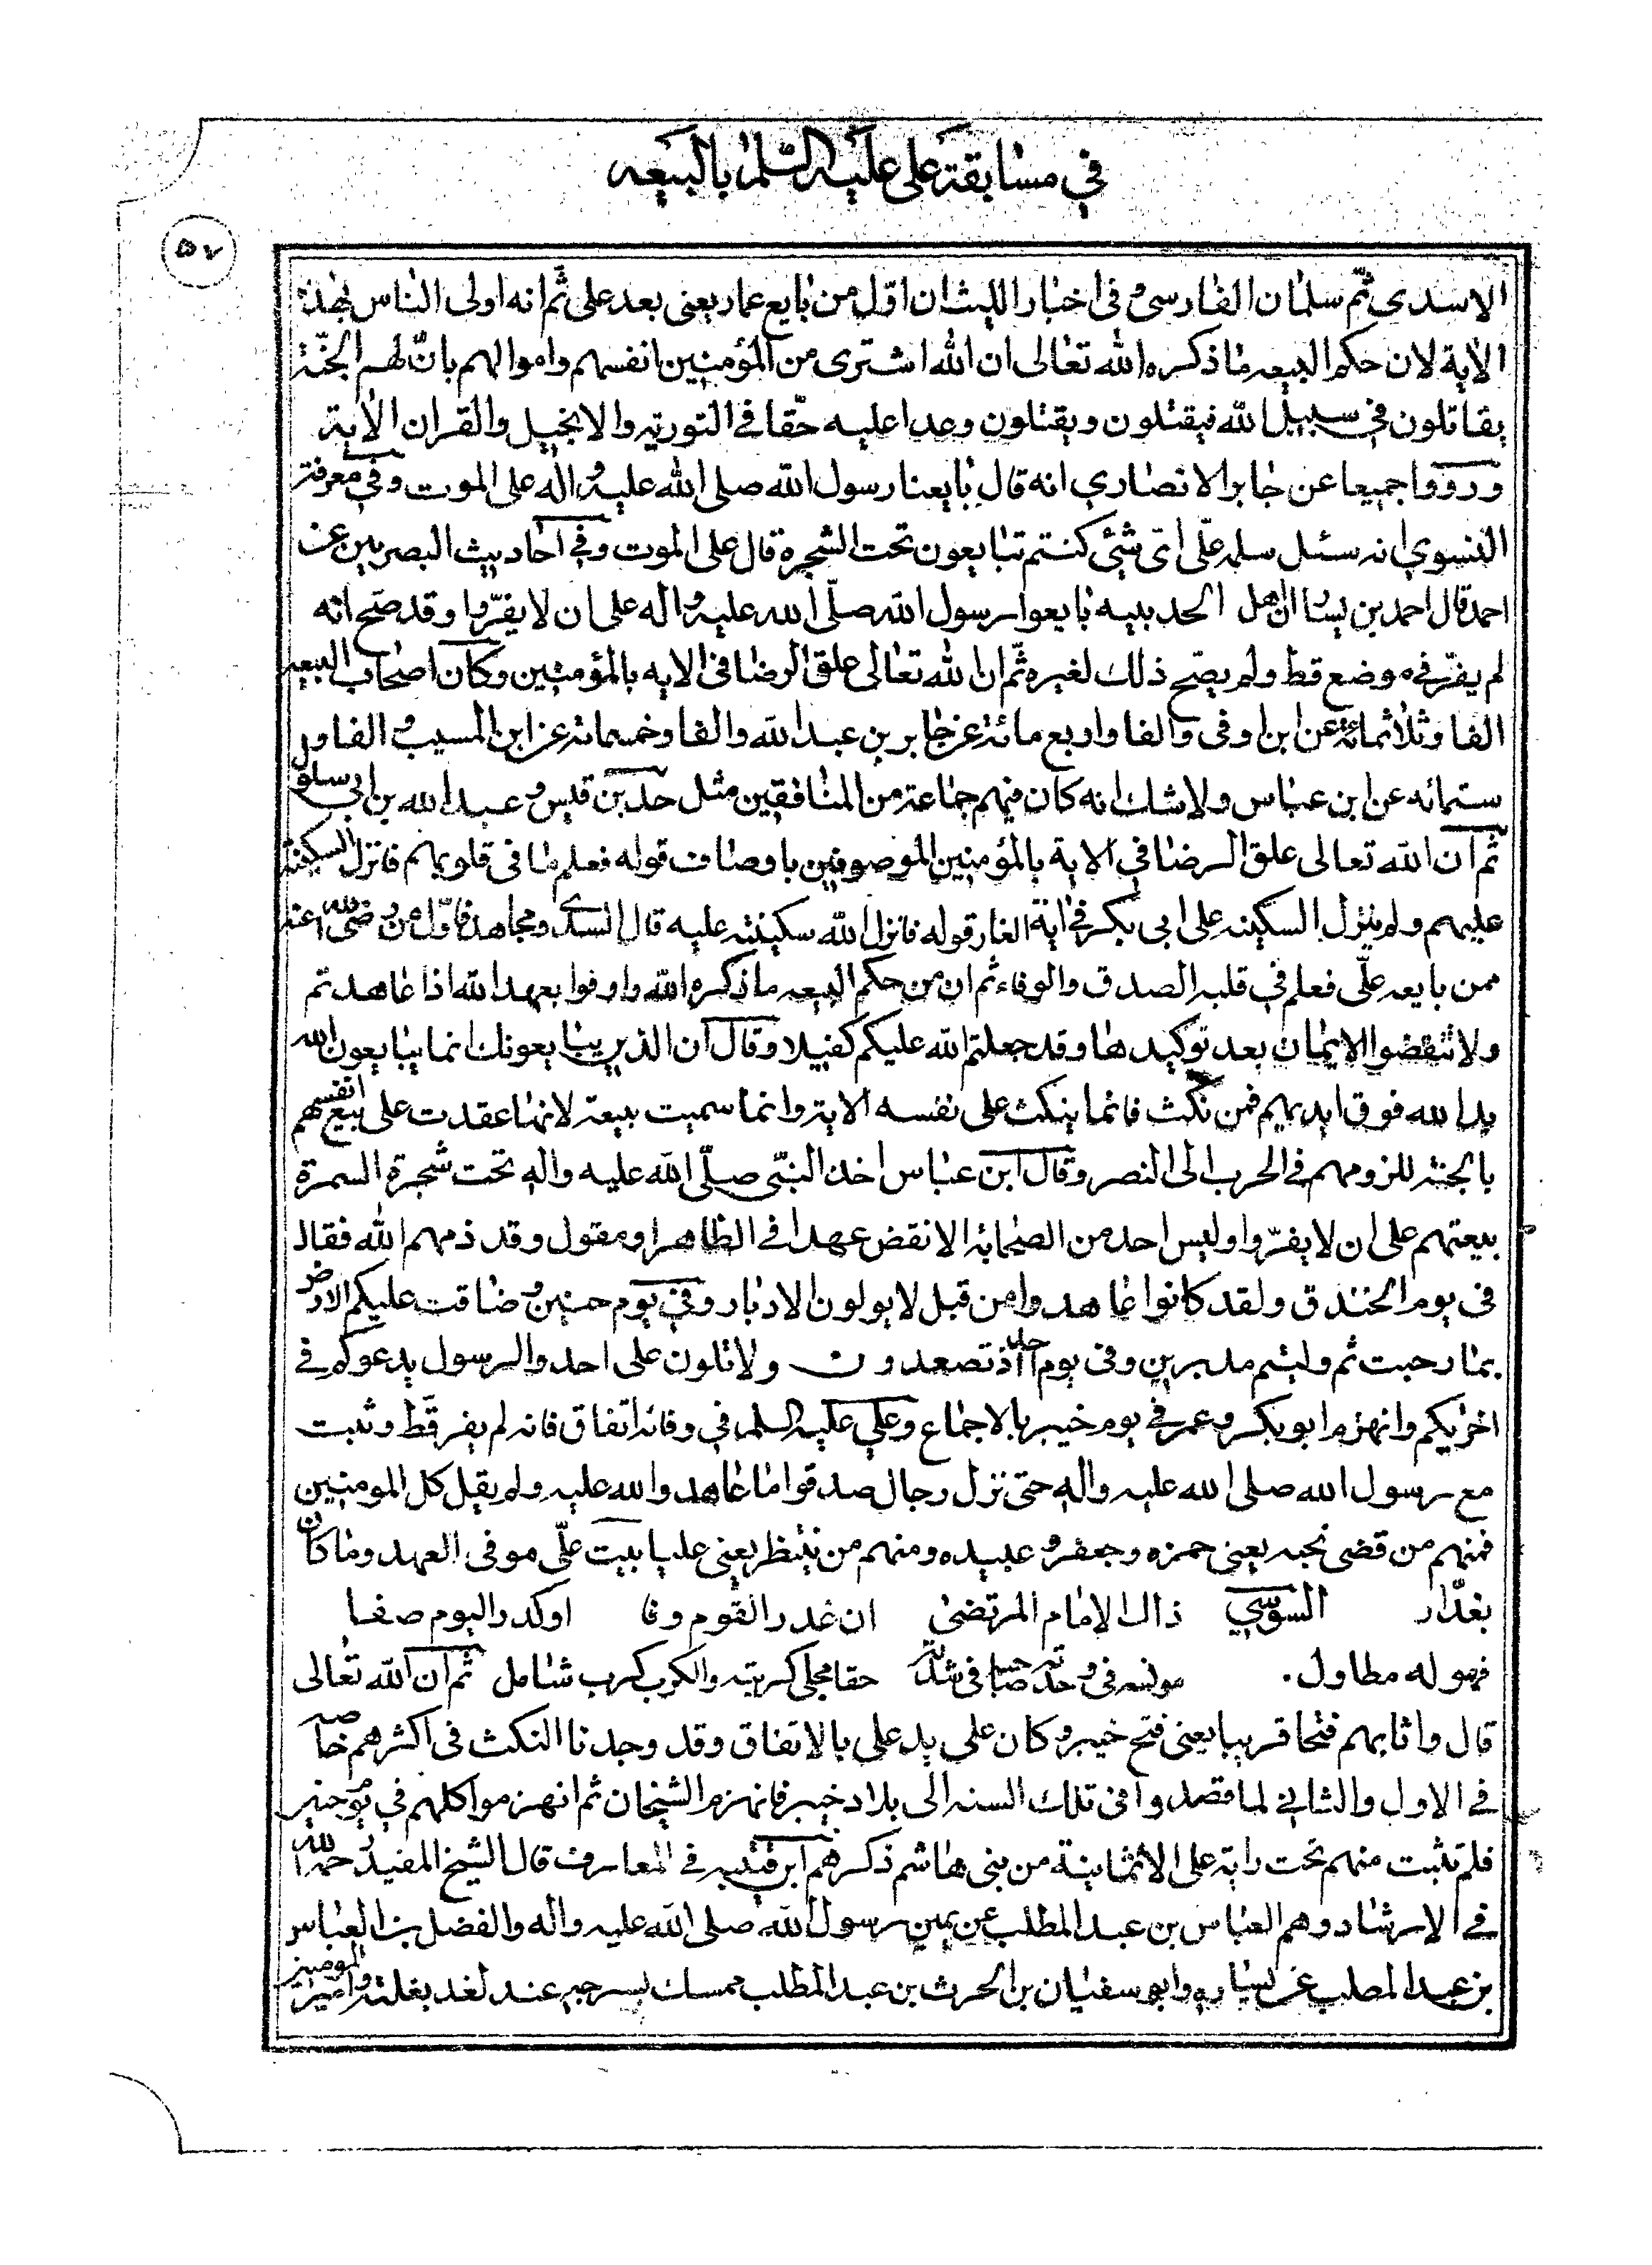 في مسابقة علي عليه السلم بالبيعه
٥٧
الاسدى ثم سلمان الفارسى و فى اخبار الليث ان اول من بايع عمار يعنى بعد على ثم انه اولى الناس بهذه
الاية لان حكم البيعه ما ذكره الله تعالى ان الله اشترى من المؤمنين انفسهم واموالهم بان لهم الجنة
يقاتلون في سبيل الله فيقتلون ويقتلون وعدا عليه حقا في التورية والانجيل والقران الاية
ورووا جميعا عن جابر الانصاري انه قال بايعنا رسول الله صلى الله عليه واله على الموت وفي معرفة
النسوي انه سئل سلمه على اى شئ كنتم تبايعون تحت الشجرة قال على الموت وفي احاديث البصريين عن
احمد قال احمد بن يسار ان اهل الحديبيه بايعوا رسول الله صلى الله عليه واله على ان لا يفروا وقد صح انه
لم يفر في موضع قط ولم يصح ذلك لغيره ثم ان الله تعالى علق الرضا فى الايه بالمؤمنين وكان اصحاب البيعه
الفا وثلاثمائة عن ابن اوفى والفا واربع مائة عن جابر بن عبد الله والفا وخمسمائة عن ابن المسيب و الفا و
ستمائه عن ابن عباس ولا شك انه كان فيهم جماعة من المنافقين مثل جد بن قيس و عبد الله بن ابي سلول
ثم ان الله تعالى علق الرضا في الاية بالمؤمنين الموصوفين باوصاف قوله فعلم ما فى قلوبهم فانزل السكينة
عليهم ولم ينزل السكينه على ابى بكر في اية الغار قوله فانزل الله سكينته عليه قال السدى ومجاهد فاول من رضى الله عنه
ممن بايعه على فعلم في قلبه الصدق والوفاء ثم ان من حكم البيعه ما ذكره الله واوفوا بعهد الله اذا عاهدتم
ولا تنقضوا الايمان بعد توكيدها وقد جعلتم الله عليكم كفيلا وقال ان الذين يبايعونك انما يبايعون الله
يد الله فوق ايديهم فمن نكث فانما ينكث على نفسه الاية وانما سميت بيعة لانها عقدت على بيع انفسهم
بالجنة للزومهم في الحرب الى النصر وقال ابن عباس اخذ النبى صلى الله عليه واله تحت شجرة السمرة
بيعتهم على ان لا يفروا وليس احد من الصحابة الا نقض عهدا في الظاهر او مقول وقد ذمهم الله فقال
فى يوم الخندق ولقد كانوا عاهدوا من قبل لا يولون الادبار وفي يوم حنين و ضاقت عليكم الارض
بما رحبت ثم وليتم مدبرين وفى يوم احد اذ تصعدون ولا تلون على احد والرسول يدعوكم في
اخريكم وانهزم ابو بكر و عمر في يوم خيبر بالاجماع وعلي عليه السلم في وفائه اتفاق فانه لم يفر قط وثبت
مع رسول الله صلى الله عليه واله حتى نزل رجال صدقوا ما عاهدوا الله عليه ولم يقل كل المومنين
فمنهم من قضى نحبه يعني حمزه وجعفر و عبيده ومنهم من ينتظر يعني عليا بيت على موفى العهد وما كان
بغدار السوسي ذاك الامام المرتضى ان غدر القوم وفا او كدر اليوم صفا
فهو له مطاول. مونسه فى وحدته صاحبه فى شدته حقا مجلى كربته والكرب كرب شامل ثم ان الله تعالى
قال واثابهم فتحا قريبا يعنى فتح خيبر و كان على يد على بالاتفاق وقد وجدنا النكث فى اكثرهم خاصه
في الاول والثاني لما قصدوا فى تلك السنه الى بلاد خيبر فانهزم الشيخان ثم انهزموا كلهم في يوم حنين
فلم يثبت منهم تحت راية على الا ثمانية من بنى هاشم ذكرهم ابن قتيبه في المعارف قال الشيخ المفيد رحمه الله
في الارشاد وهم العباس بن عبد المطلب عن يمين رسول الله صلى الله عليه واله والفضل بن العباس
بن عبد المطلب عن يساره وابو سفيان بن الحرث بن عبد المطلب ممسك بسرجه عند لغد بغلته وامير المومنين